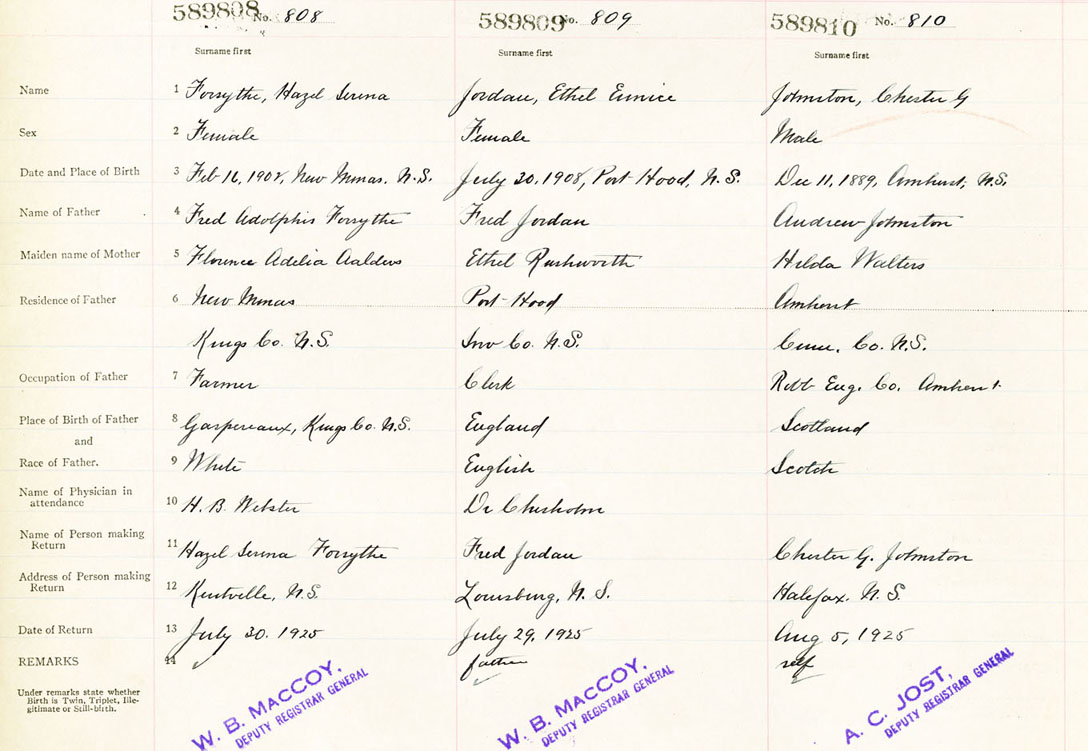 589808 No. 808 589809 No. 809 589810 No. 810
Surname first Surname first Surname first
Name 1 Forsythe, Hazel Serena Jordan, Ethel Eunice Johnston, Chester G
Sex 2 Female Female Male
Date and Place of Birth 3 Feb 16, 1908, New Minas. N.S. July 30, 1908, Port Hood, N.S. Dec 11, 1889, Amherst, N.S.
Name of Father 4 Fred Adolphis Forsythe Fred Jordan Andrew Johnston
Maiden name of Mother 5 Florence Adelia Aalders Ethel Rushworth Hilda Walters
Residence of Father 6 New Minas Port Hood Amherst
Kings Co. N.S. Inv Co. N.S. Cum. Co. N.S.
Occupation of Father 7 Farmer Clerk Robb Eng. Co. Amherst
Place of Birth of Father 8 Gaspereaux, Kings Co. N.S. England Scotland
and
Race of Father. 9 White English Scotch
Name of Physician in
attendance 10 H. B. Webster Dr Chisholm
Name of Person making
Return 11 Hazel Serena Forsythe Fred Jordan Chester G. Johnston
Address of Person making
Return 12 Kentville, N.S. Louisburg, N.S. Halifax. N.S.
Date of Return 13 July 30. 1925 July 29, 1925 Aug 5, 1925
REMARKS 14 father self
Under remarks state whether
Birth is Twin, Triplet, Ille-
gitimate or Still-birth.
W. B. MACCOY, W. B. MACCOY, A. C. JOST,
DEPUTY REGISTRAR GENERAL DEPUTY REGISTRAR GENERAL DEPUTY REGISTRAR GENERAL